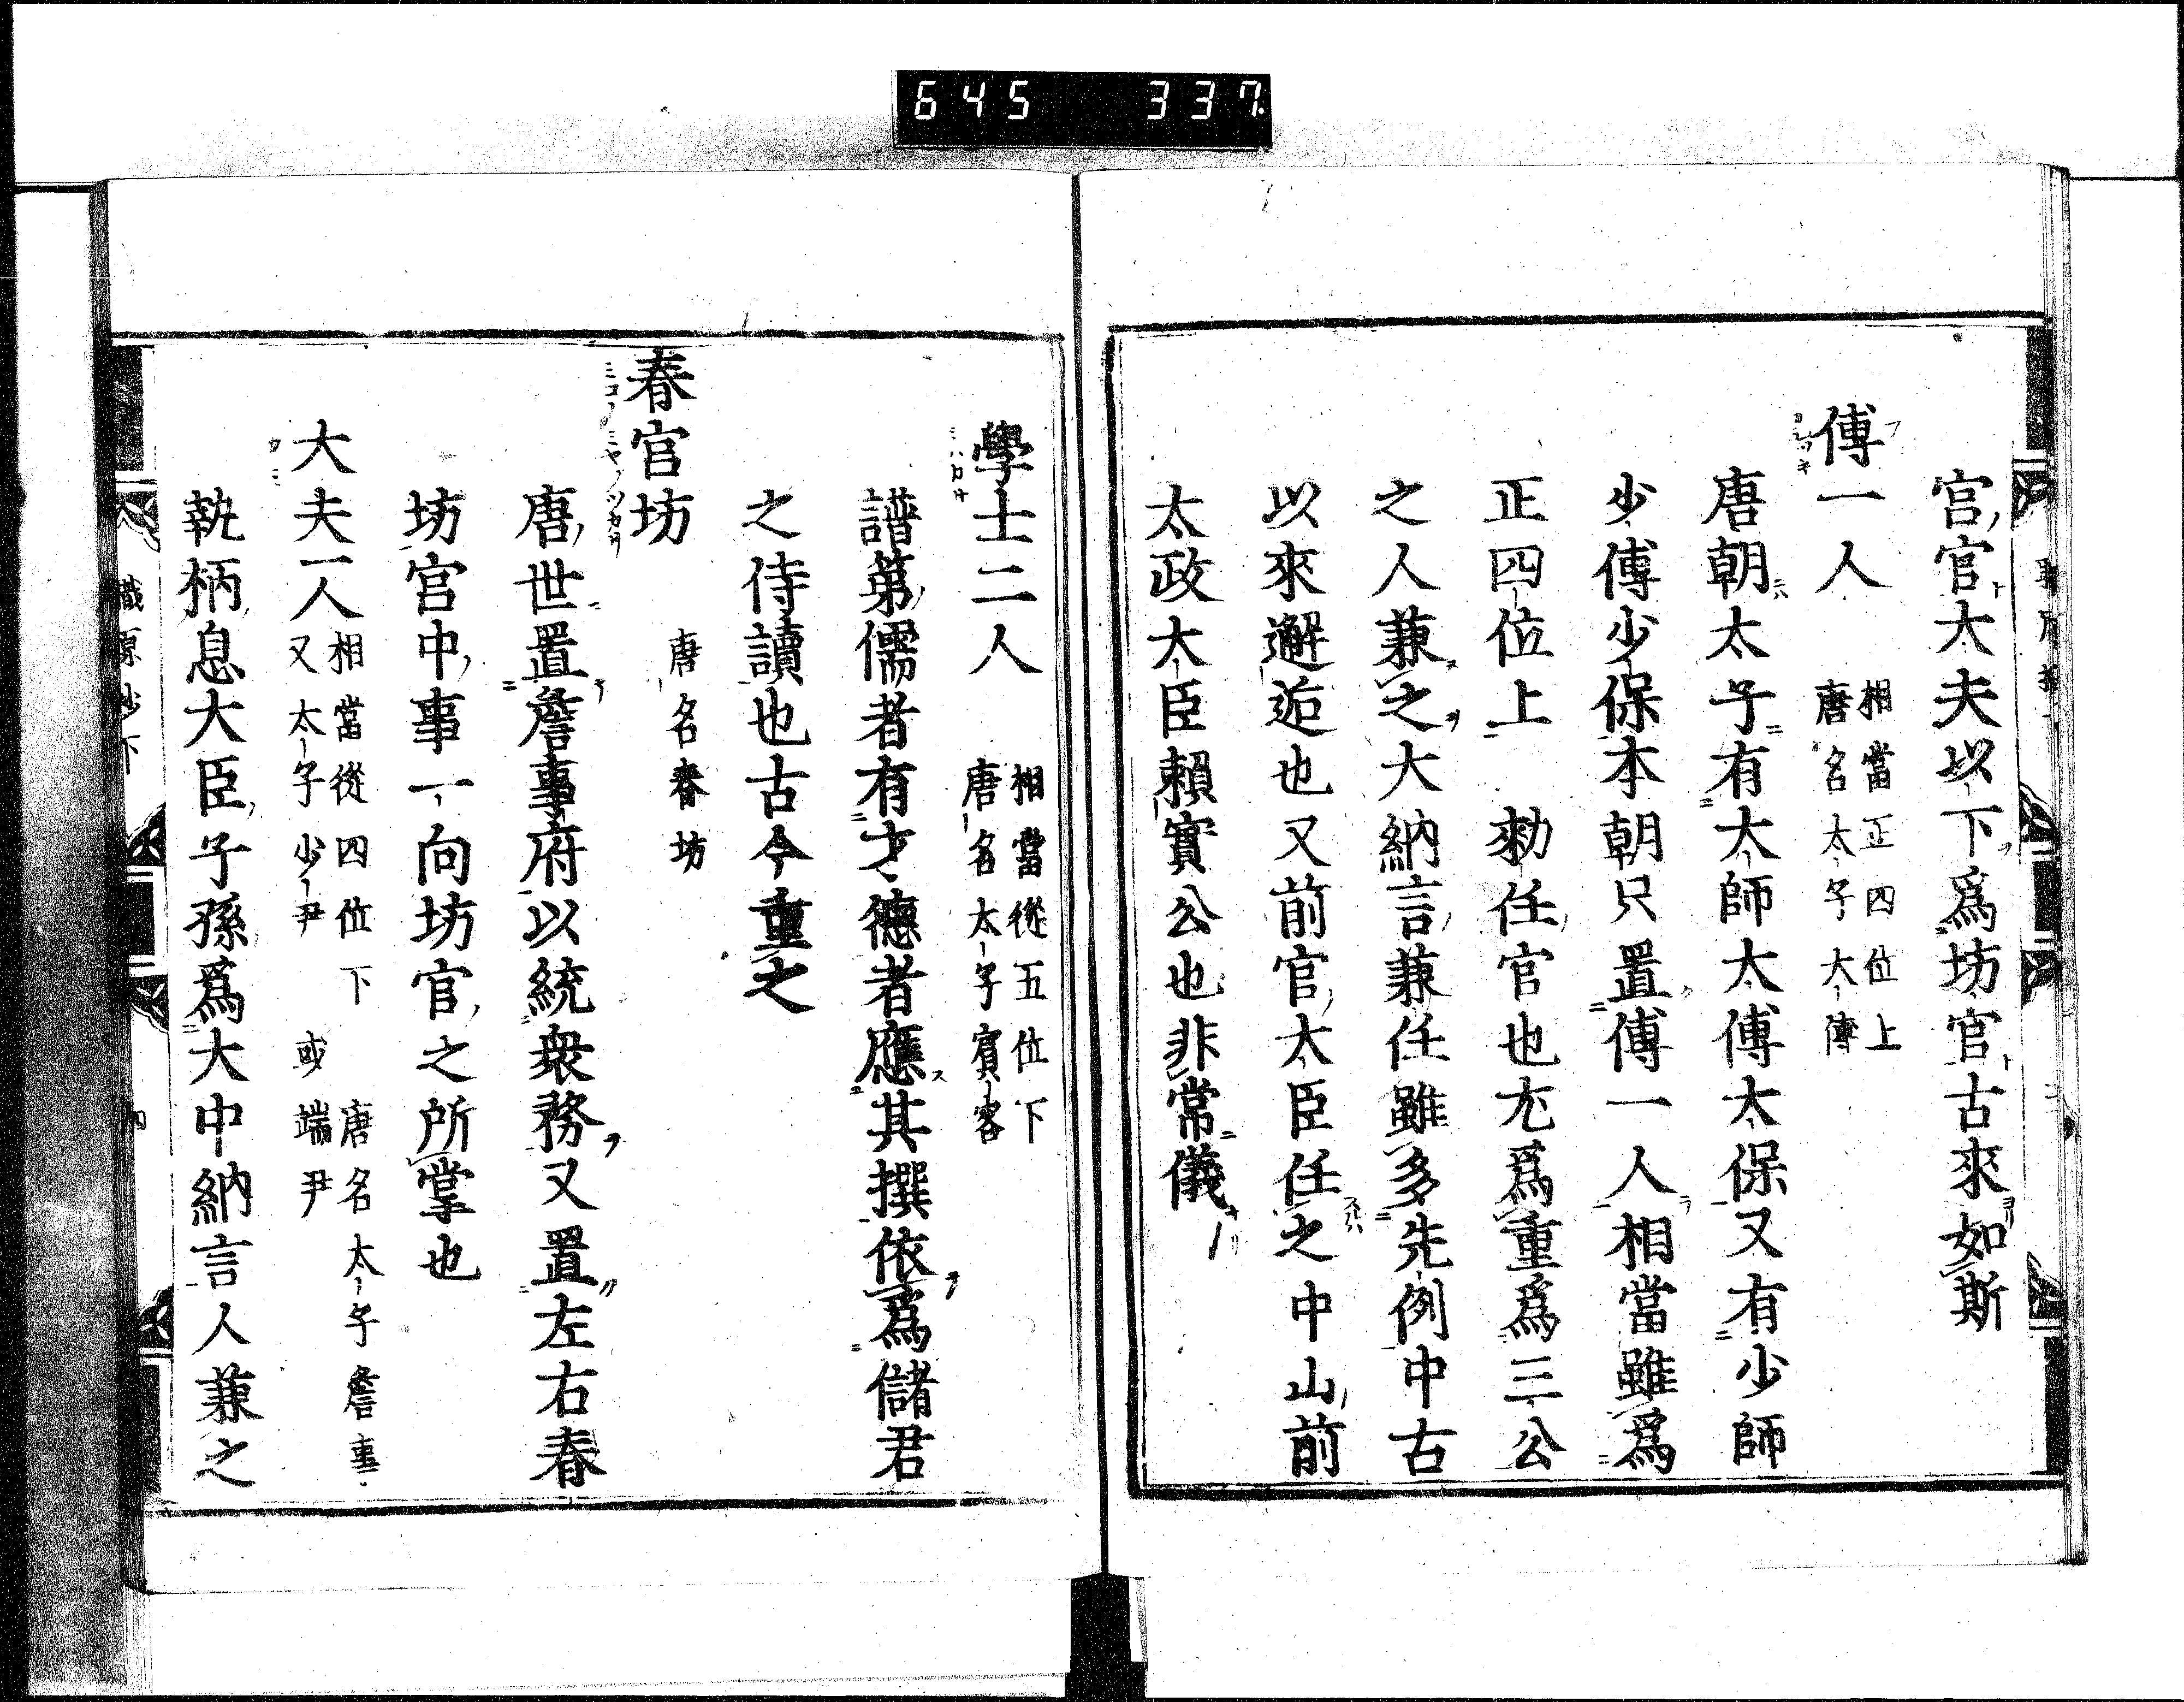 645 337
宮官大夫以下爲坊官古來如斯
傅一人
相當正四位上
唐名太子大傅
唐朝太子有太師太傅太保又有少師
少傅少保本朝只置傅一人相當雖爲
正四位上 勅任官也尤爲重爲三公
之人兼之大納言兼任雖多先例中古
以來邂逅也又前官太臣任之中山前
太政大臣頼實公也非常儀
學士二人
相當從五位下
唐名太子賓客
譜第儒者有才德者應其撰依爲儲君
之侍讀也古今重之
春官坊
唐名春坊
唐世置詹事府以統衆務又置左右春
坊宮中事一向坊官之所掌也
大夫一人
相當從四位下 唐名太子詹事
又太子少尹 或端尹
執柄息大臣子孫爲大中納言人兼之
職原抄下